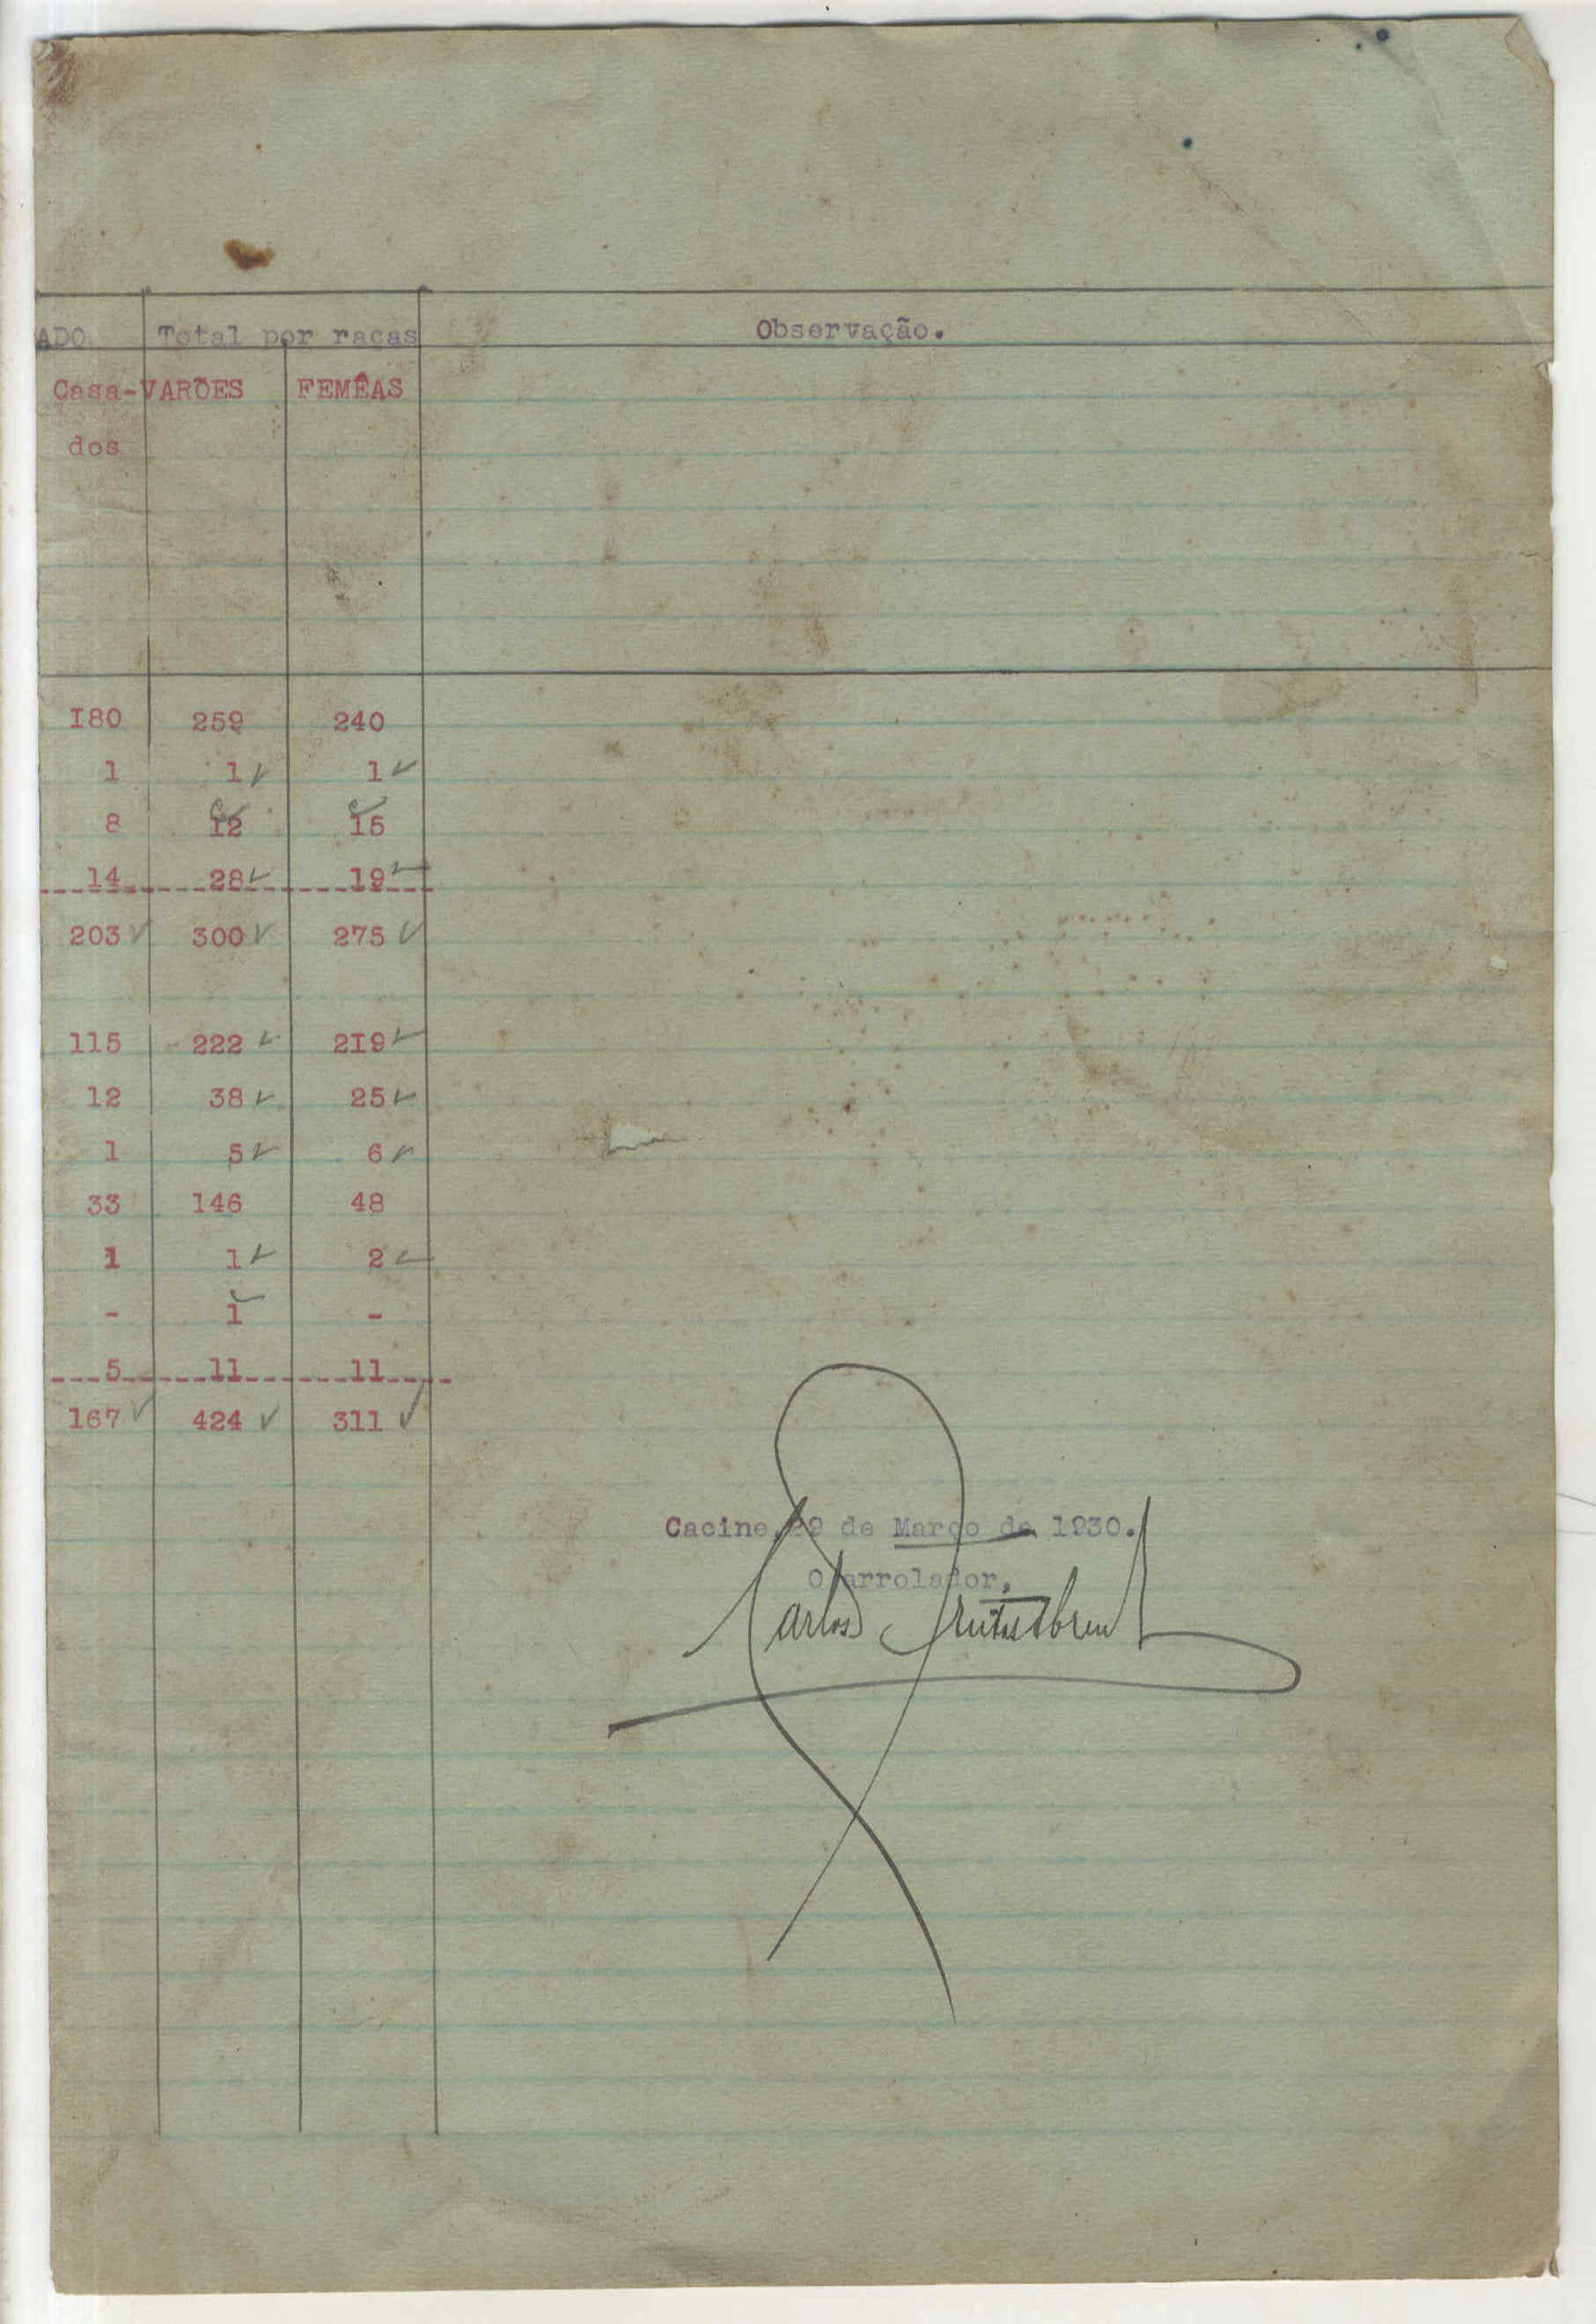 ADO Total por raças Observação.
Casa- VARÕES FEMÊAS
dos
I80 259 240
1 1 1
8 12 15
14 28 19
203 300 275
115 222 2I9
12 38 25
1 5 6
33 146 48
1 1 2
- 1 -
5 11 11
167 424 311
Cacine, 29 de Março de 1930.
O arrolador,
Carlos Abreu